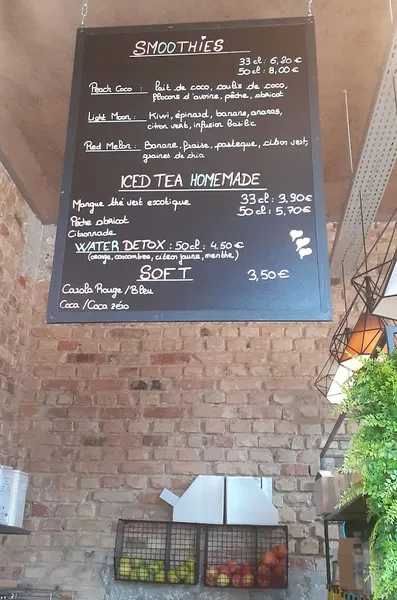 SMOOTHIES
33 cl : 6,20 €
50 cl : 8,00 €
Peach Coco : lait de coco, coulis de coco,
flocons d'avoine, pêche, abricot
Light Moon : Kiwi, épinard, banane, ananas,
citron vert, infusion basilic
Red Melon : Banane, fraise, pastèque, citron vert,
graines de chia
ICED TEA HOMEMADE
Mangue thé vert exotique 33 cl : 3,90€
Pêche abricot 50 cl : 5,70€
Citronnade
WATER DETOX : 50cl : 4.50€
(orange, concombre, citron jaune, menthe)
SOFT 3,50€
Casola Rouge / Bleu
Coca / Coca zéro